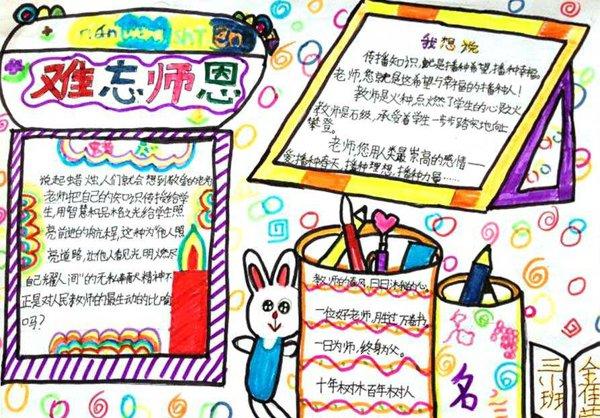 nan wang shi en
难忘师恩
我想说
传播知识,就是播种希望,播种幸福。
老师,您就是这希望与幸福的播种人!
教师是火种,点燃了学生的心灵之火
教师是石级,承受着学生一步步踏实地向
攀登。
老师您用人类最崇高的感情——
爱播种春天,播种理想,播种力量……
说起蜡烛,人们就会想到敬爱的老师
老师把自己的知识传授给学
生,用智慧和品格的光给学生照
亮前进的航程,这种为他人照
亮道路,让他人看见光明,燃尽
自己“耀人间”的无私奉献精神不
正是对人民教师的最生动的比喻
吗?
一位好老师,胜过万卷书。
一日为师,终身为父。
十年树木百年树人
名
名
三
班